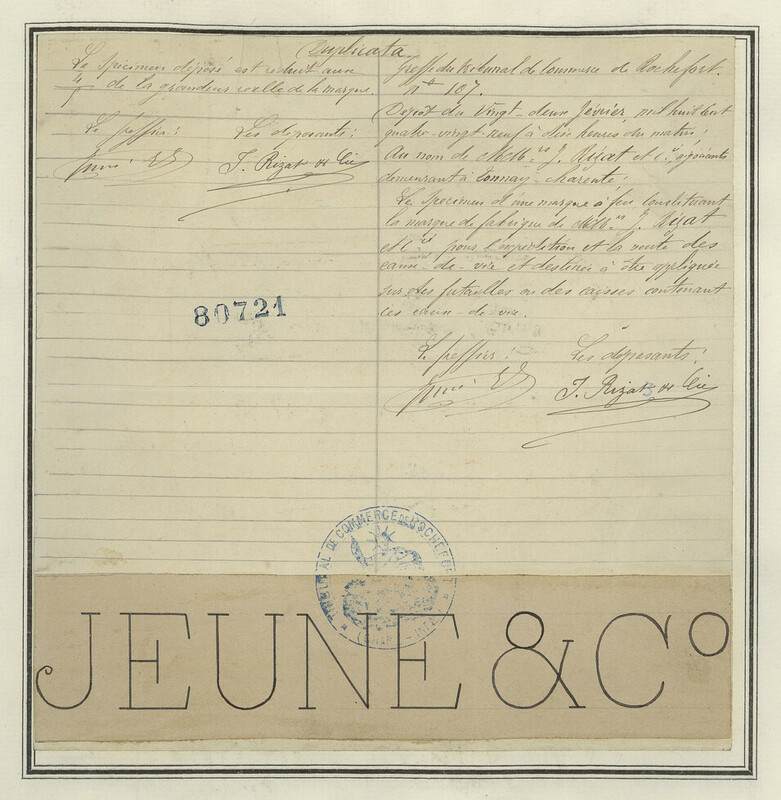 Duplicata
Le specimen déposé est réduit aux
4/7 de la grandeur réelle de la marque
Le greffier: Les déposants:
J. Rizat et Cie
80721
Greffe du tribunal de Commerce de Rochefort.
N° 107.
Dépôt du vingt-deux février mil huit cent
quatre-vingt-neuf à dix heures du matin;
Au nom de MM.rs J. Rizat et Cie, négociants
demeurant à Tonnay-Charente;
Le specimen d'une marque à feu constituant
la marque de fabrique de MM.rs J. Rizat
et Cie pour l'expédition et la vente des
eaux-de-vie et destinée à être appliquée
sur des futailles ou des caisses contenant
ces eaux-de-vie.
Le greffier: Les déposants:
J. Rizat et Cie
TRIBUNAL DE COMMERCE DE ROCHEFORT
JEUNE & Co